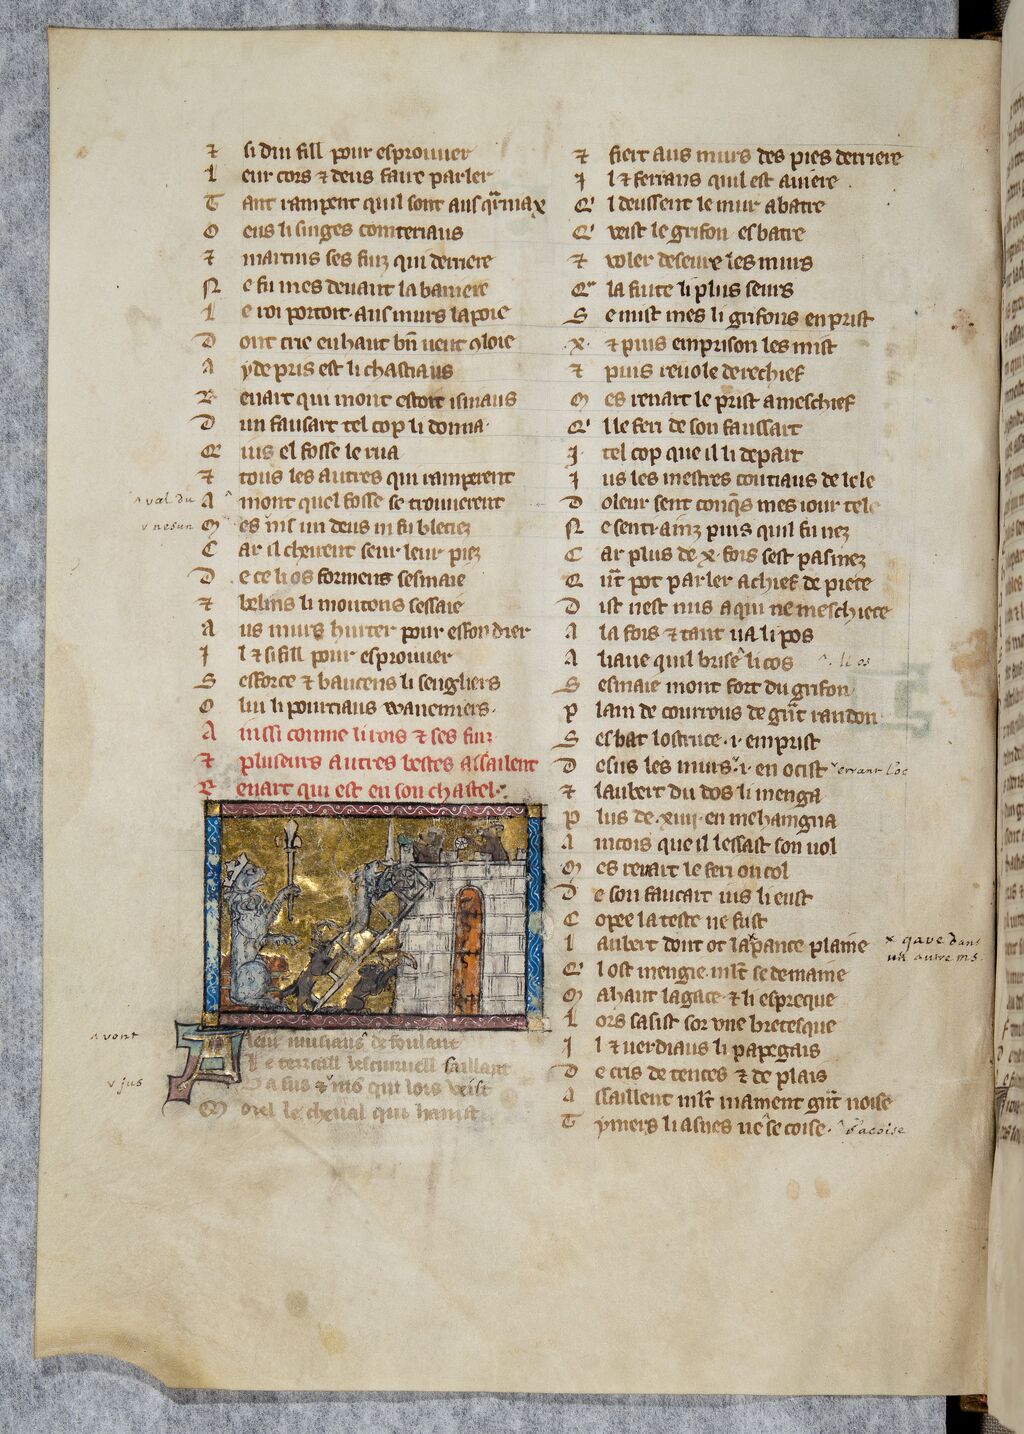 ⁊ si dui fill pour esprouuer
L eur cors ⁊ deus faire parler
T ant rampent quil sont aus
O eus li singes
⁊ martins ses fiuz qui derriere
N e fu mes deuant la baniere
L e roi portoit aus murs lapoie
D ont crie en haut bn̄ uent
A yde pris est li chastiaus
R enart qui mont estoit isniaus
D un fausart tel cop li donna
Q uis el fosse le rua
⁊ tous les autres qui ramperent
A mont quel fosse se trouuerent
M es un deus ni fu bleciez
C ar il cheirent seur leur piez
D e ce li os forment sesmaie
⁊ belins li moutons sessaie
A us murs hurter pour effondrer
I l ⁊ si fill pour esprouuer
S efforce ⁊ baucens li sengliers
O lui li pourciaus
A inssi comme li rois ⁊ ses fiuz
⁊ pluseurs autres bestes assailent
R enart qui est en son chastel
le cheual qui
⁊ fiert aus murs des pies derriere
I l ⁊ ferrans quil est auiere
Q l deussent le mur abatre
Q veist le grifon esbatre
⁊ voler deseure les murs
Q la fuite li plus seurs
S e mist mes li grifons en prist
.x. ⁊ puis emprison les mist
⁊ puis reuole derechief
M es renart le prist a meschief
Q lle feri de son faussart
I tel cop que il li depart
I us les mestres coutiaus de lele
D oleur sent mes iour tele
N e senti ainz puis quil fu nez
C ar plus de .x. fois sest pasmez
Q nt̄ pot parler a chief de piece
D ist nest nus a qui ne meschiece
A la fois ⁊ tant ua li pos
A liaue quil brise li cos ^ li os
S esmaie mont fort du grifon
P lain de courrous de randon
S esbat lostruce .i. emprist
D esus les murs .i. en ocist errant loc
⁊ laubert du dos li menga
P lus de .xiiii. en mehaingna
A incois que il lessast son uol
M es renart le feri ou col
D e son faucart ius li eust
C opee la teste ne fust
L aubert dont ot la pance plaine × qave dans
un autre ms.
Q l ost mengie mlt̄ se demaine
M ahaut lagace ⁊ li espreque
L ors sasist sor vne bretesque
I l ⁊ uerdiaus li papegais
D e cris de tences ⁊ de plais
A ssaillent mlt̄ mainent noise
T ymers li asnes ne se coise